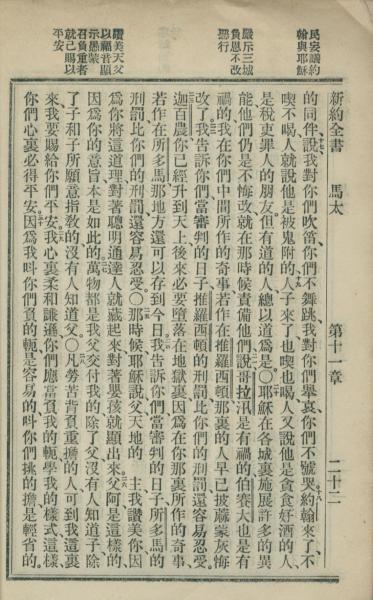 民妄議約
翰與耶穌
嚴斥三城
負恩不改
惡行
讚美天父
以福音顯
示愚蒙
召負重者
就己賜以
平安
新約全書 馬太 第十一章 二十二
的同伴說我對你們吹笛、你們不舞跳、我對你們舉哀、你們不號哭、約翰來了、不
喫不喝、人就說他是被鬼附的、人子來了、也喫也喝、人又說他是貪食好酒的人、
是稅吏罪人的朋友、但有道的人、總以道為是〇耶穌在各城裏施展許多的異
能、他們仍是不悔改、就在那時候責備他們說、哥拉汛是有禍的、伯賽大也是有
禍的、我在你們中間所作的奇事、若作在推羅西頓那裏的人、早已披蔴蒙灰悔
改了、我告訴你們、當審判的日子、推羅西頓的刑罰、比你們的刑罰還容易忍受、
迦百農你已經升到天上、後來必要墮落在地獄裏、因為在你那裏所作的奇事、
若作在所多馬那地方還可以存到今日、我告訴你們、當審判的日子、所多馬的
刑罰比你們的刑罰還容易忍受〇那時候耶穌說、父天地的 主、我讚美你、因
為你將這道理、對著聰明通達人就藏起來、對著嬰孩就顯出來、父阿、是這樣的、
因為你的意旨本是如此的、萬物都是我父交付我的、除了父沒有人知道子、除
了子和子所願意指敎的、沒有人知道父〇凡勞苦背負重擔的人、可到我這裏
來、我要賜給你們平安、我心裏柔和謙遜、你們應當負我的軛、學我的樣式、這樣、
你們心裏必得平安、因為我呌你們負的軛是容易的、呌你們挑的擔是輕省的。